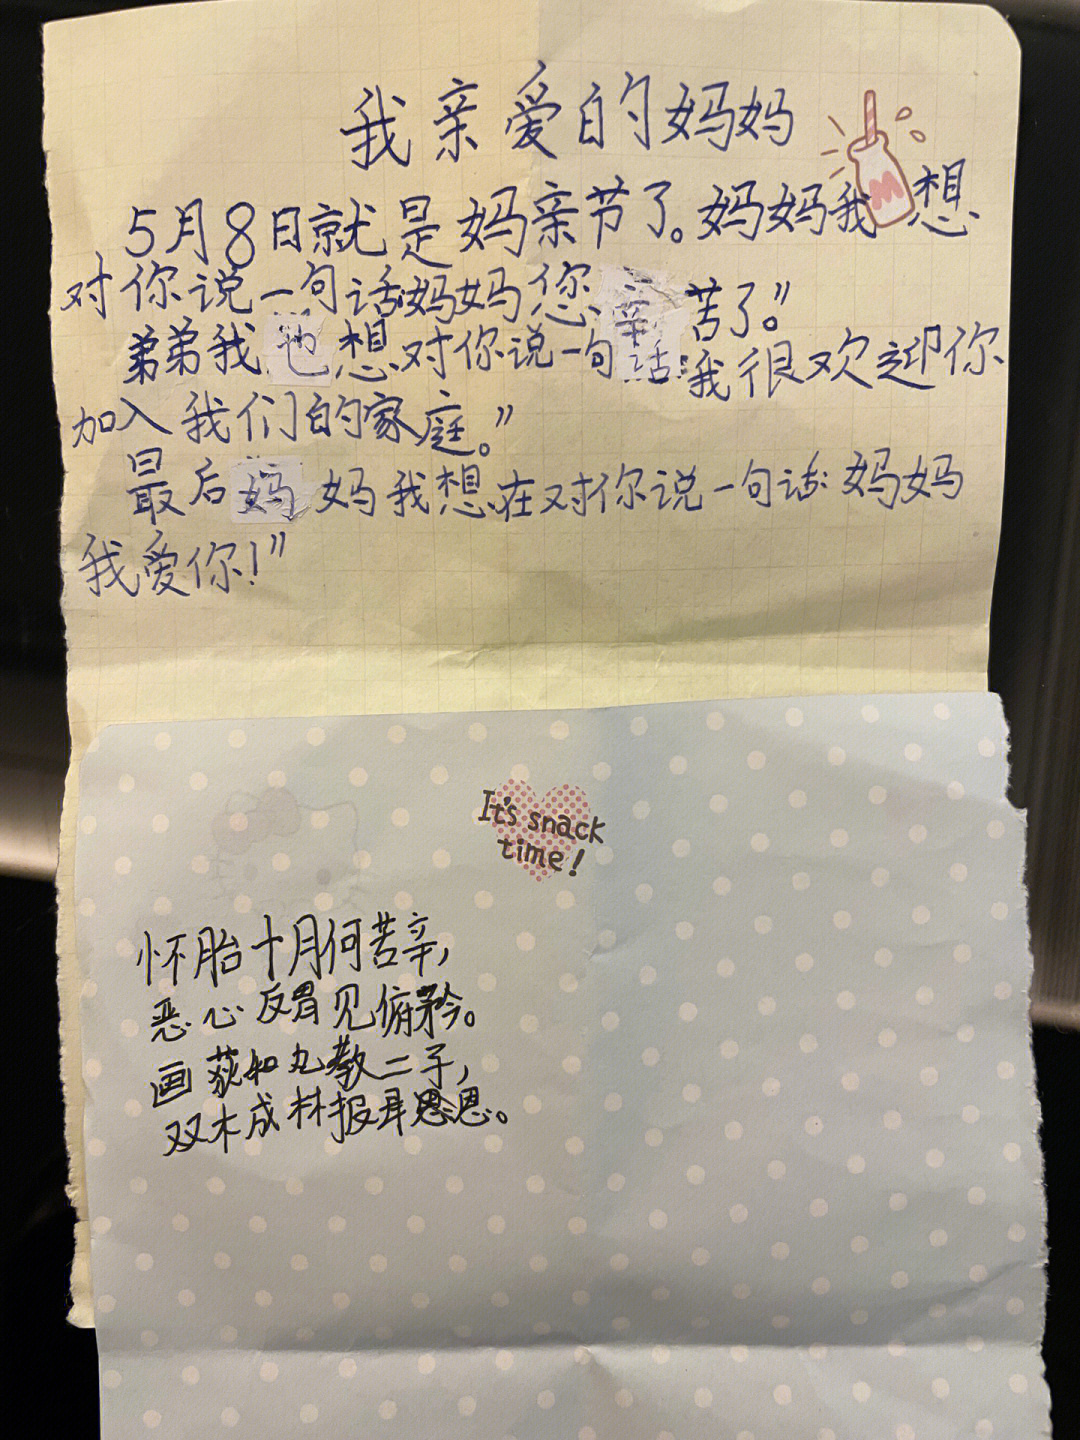 我亲爱的妈妈
5月8日就是妈亲节了。妈妈我想
对你说一句话:妈妈您辛苦了。”
弟弟我也想对你说一句话:我很欢迎你
加入我们的家庭。”
最后妈妈我想在对你说一句话:妈妈
我爱你!”
It's snack
time!
怀胎十月何苦辛,
恶心反胃见俯矜。
画荻和丸教二子,
双木成林报恩。